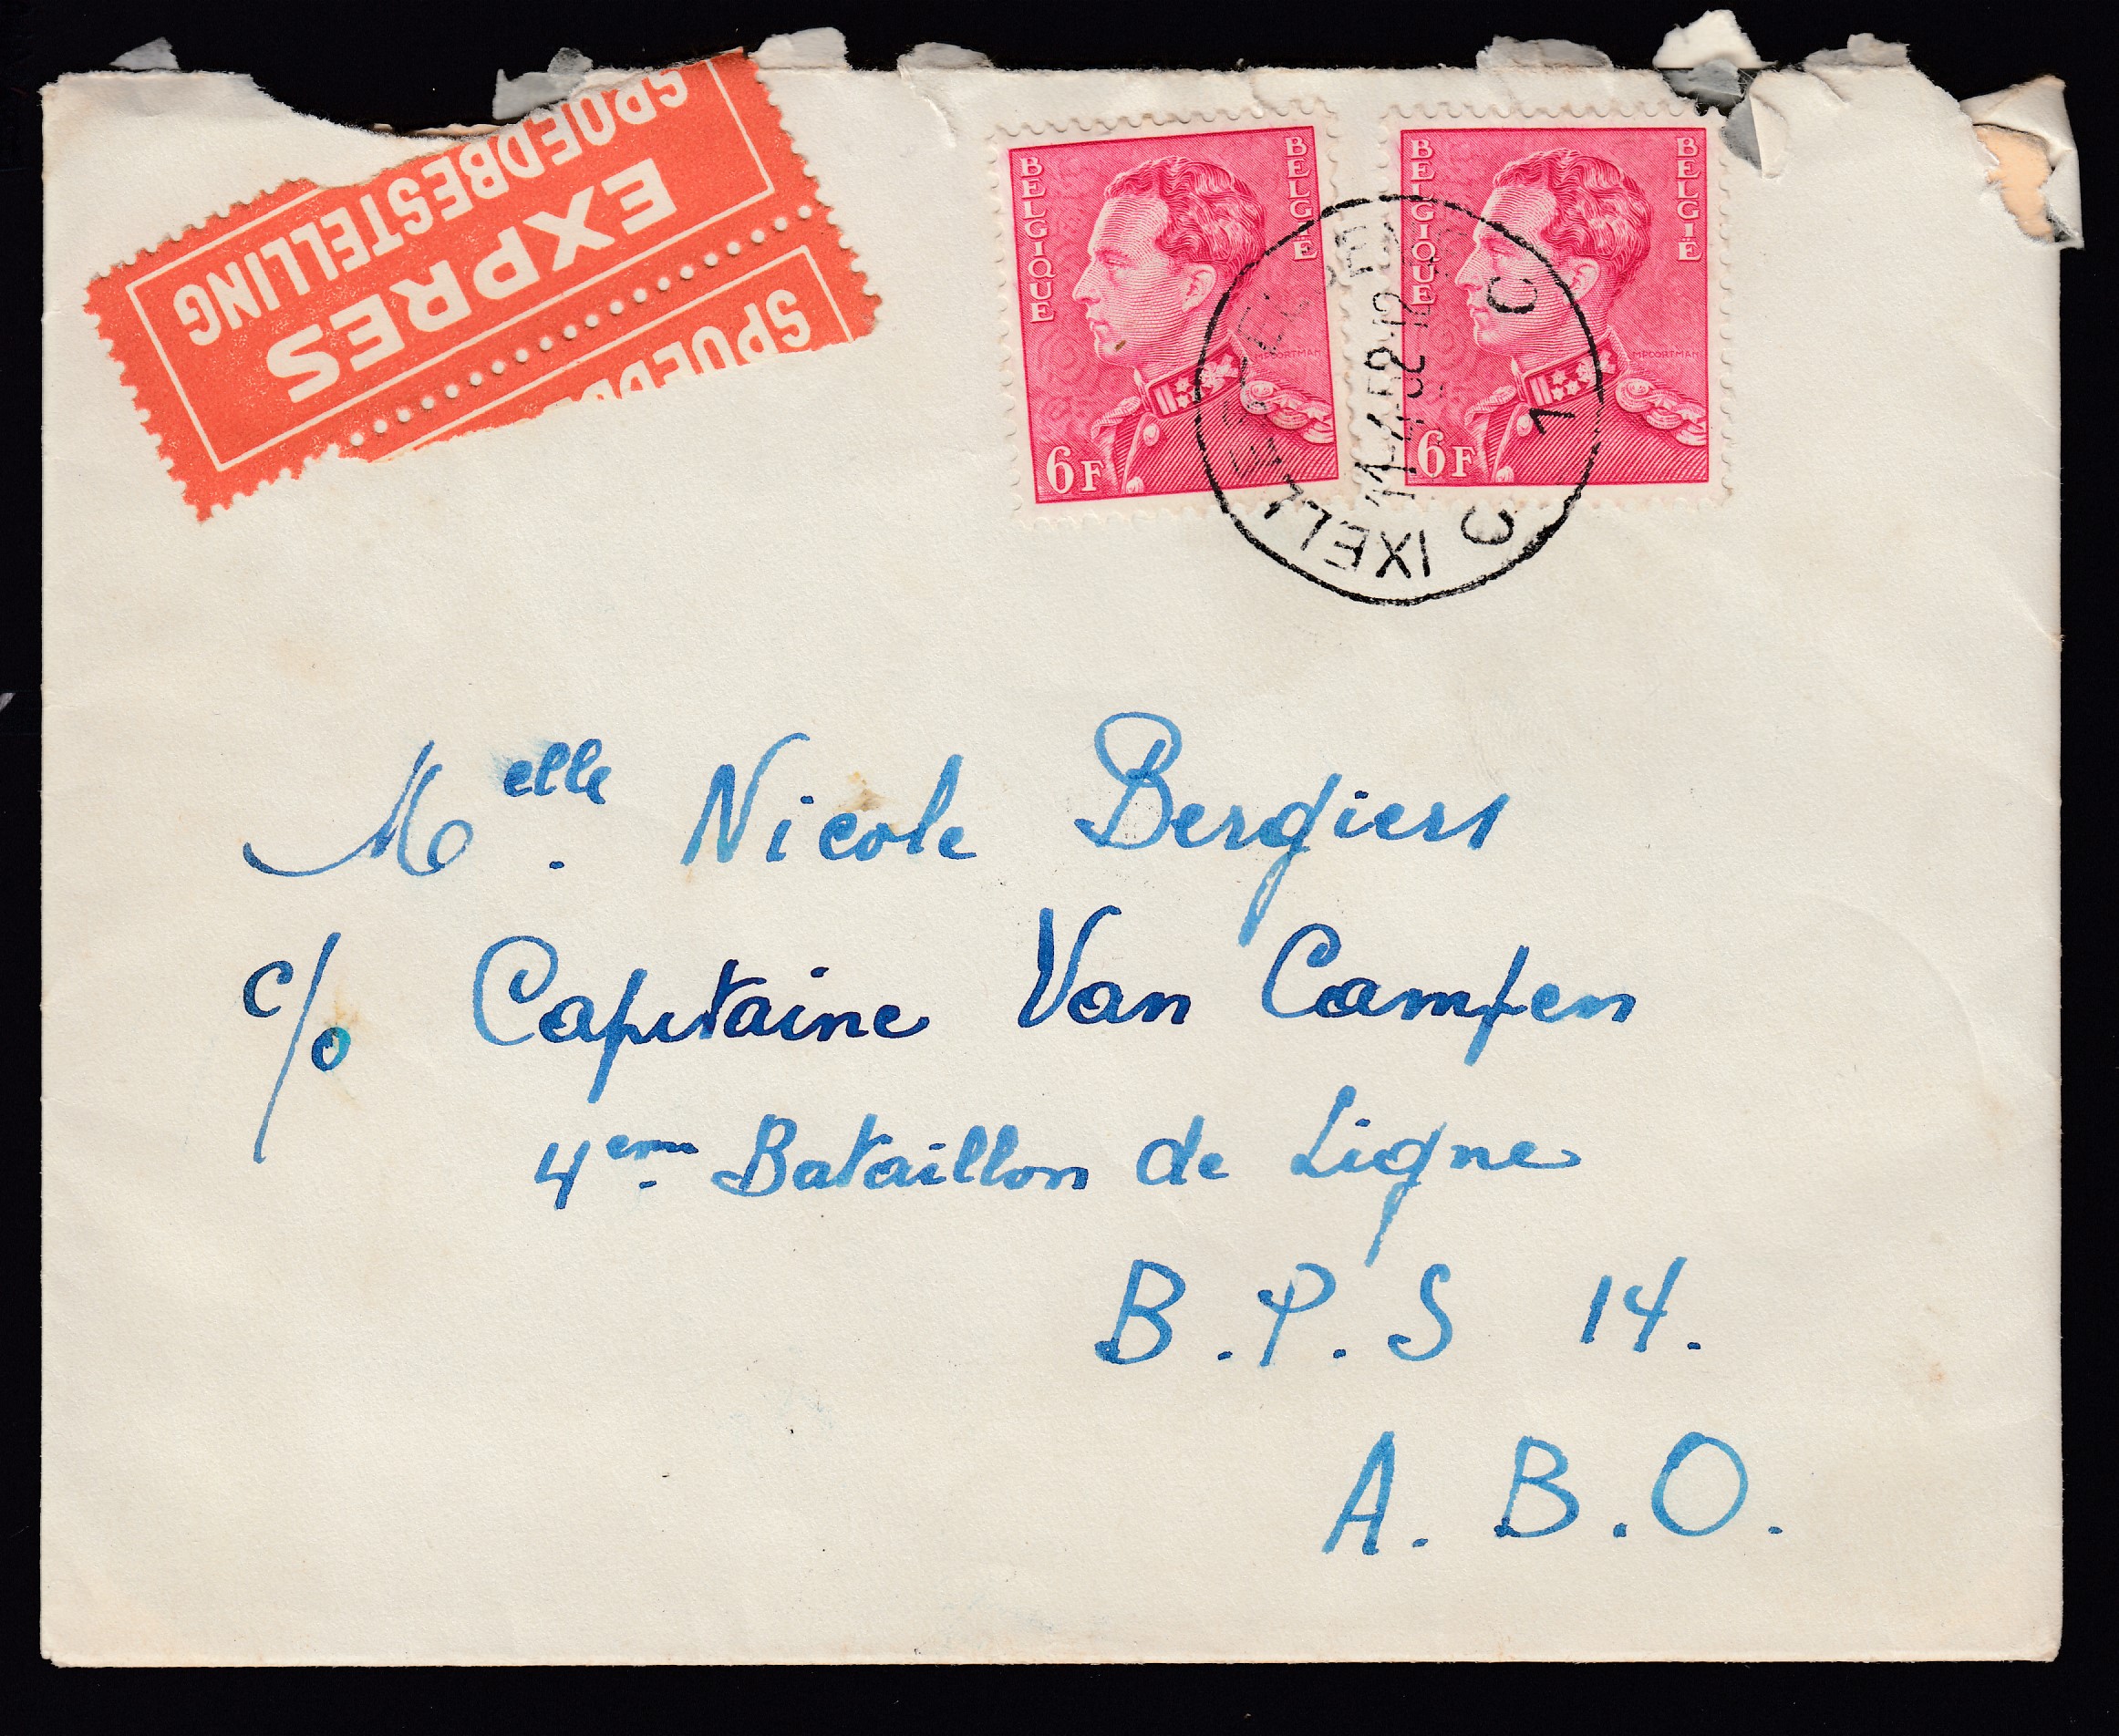 SPOEDBESTELLING
EXPRES
SPOEDB
BELGIQUE
BELGIË
MPOORTMAN
6F
BELGIQUE
BELGIË
MPOORTMAN
6F
IXELLES
C 1 C
11-4-52 12
Melle. Nicole Bergiers
c/o Capitaine Van Campen
4eme Bataillon de Ligne
B.P.S 14.
A.B.O.